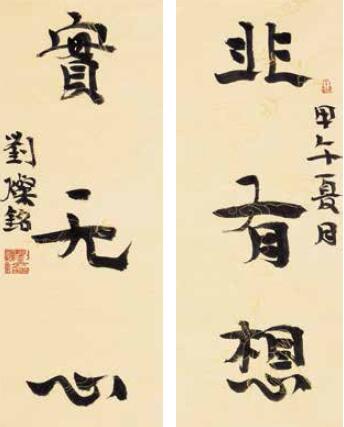 甲午夏月
非有想
實无心
劉燦銘